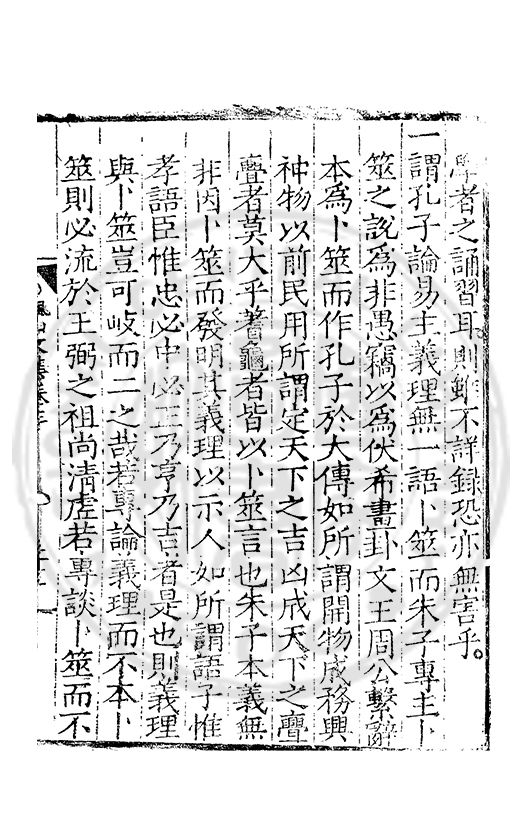 學者之誦習耳則雖不詳録恐亦無害乎。
一謂孔子論易主義理無一語卜筮而朱子專主卜
筮之説爲非愚竊以爲伏希畫卦文王周公繫辭
本爲卜筮而作孔子於大傳如所謂開物成務興
神物以前民用所謂定天下之吉凶成天下之亹
亹者莫大乎蓍龜者皆以卜筮言也朱子本義無
非因卜筮而發明其義理以示人如所謂語子惟
孝語臣惟忠必中必正乃亨乃吉者是也則義理
與卜筮豈可岐而二之哉若專論義理而不本卜
筮則必流於王弼之祖尚清虛若專談卜筮而不